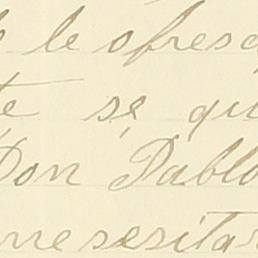 e le ofresc
te se qu
Don Pablo
nesesitar